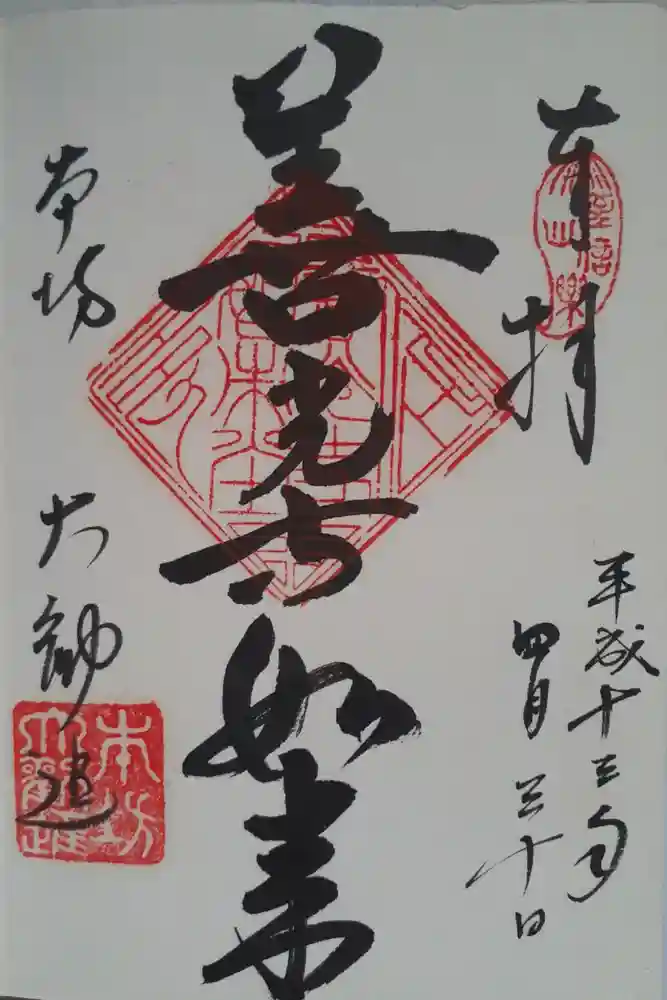 奉拝
平成十三年
四月三十日
善光寺如来
本坊 大勧進